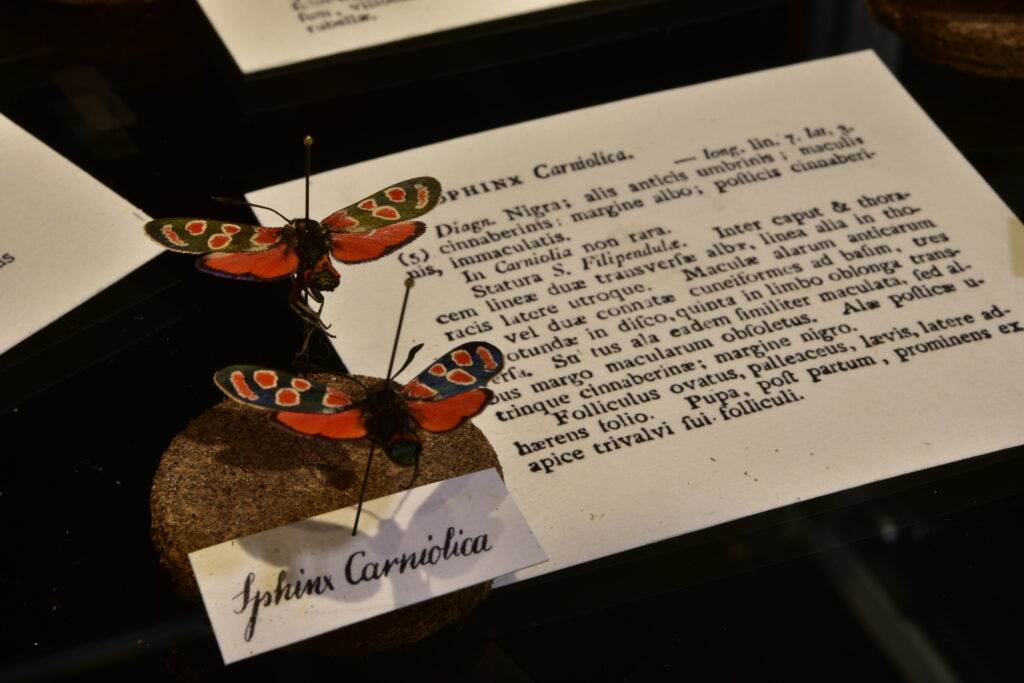 rubellæ.
SPHINX Carniolica.
— long. lin. 7. lat. 3.
Diagn. Nigra; alis anticis umbrinis; maculis
(5) cinnaberinis: margine albo; posticis cinnaberi-
nis, immaculatis.
In Carniolia non rara.
Statura S. Filipendulæ. Inter caput & thora-
cem lineæ duæ transversæ albæ, linea alia in tho-
racis latere utroque. Maculæ alarum anticarum
vel duæ connatæ cuneiformes ad basim, tres
otundæ in disco, quinta in limbo oblonga trans-
ersa. tus ala eadem similiter maculata, sed al-
bus margo macularum obsoletus. Alæ posticæ u-
trinque cinnaberinæ; margine nigro.
Folliculus ovatus, palleaceus, lævis, latere ad-
hærens folio. Pupa, post partum, prominens ex
apice trivalvi sui folliculi.
Sphinx Carniolica